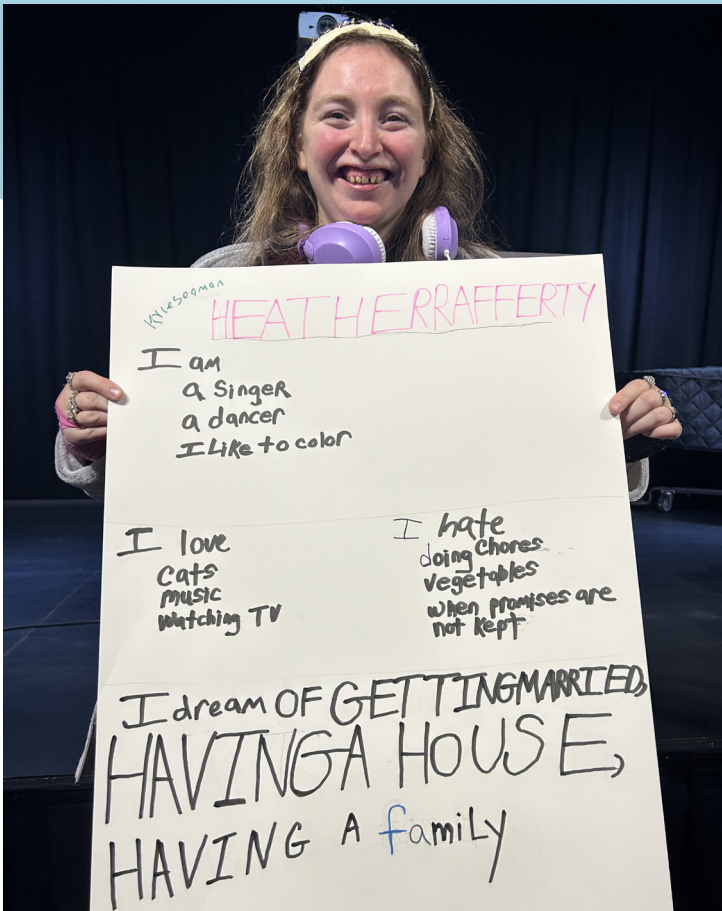 Kyleseaman
HEATHERRAFFERTY
I am
a Singer
a dancer
I Like to color
I love
Cats
music
watching TV
I hate
doing Chores
vegetables
when promises are
not kept
I dream OF GETTINGMARRIED,
HAVINGA HOUSE,
HAVING A family